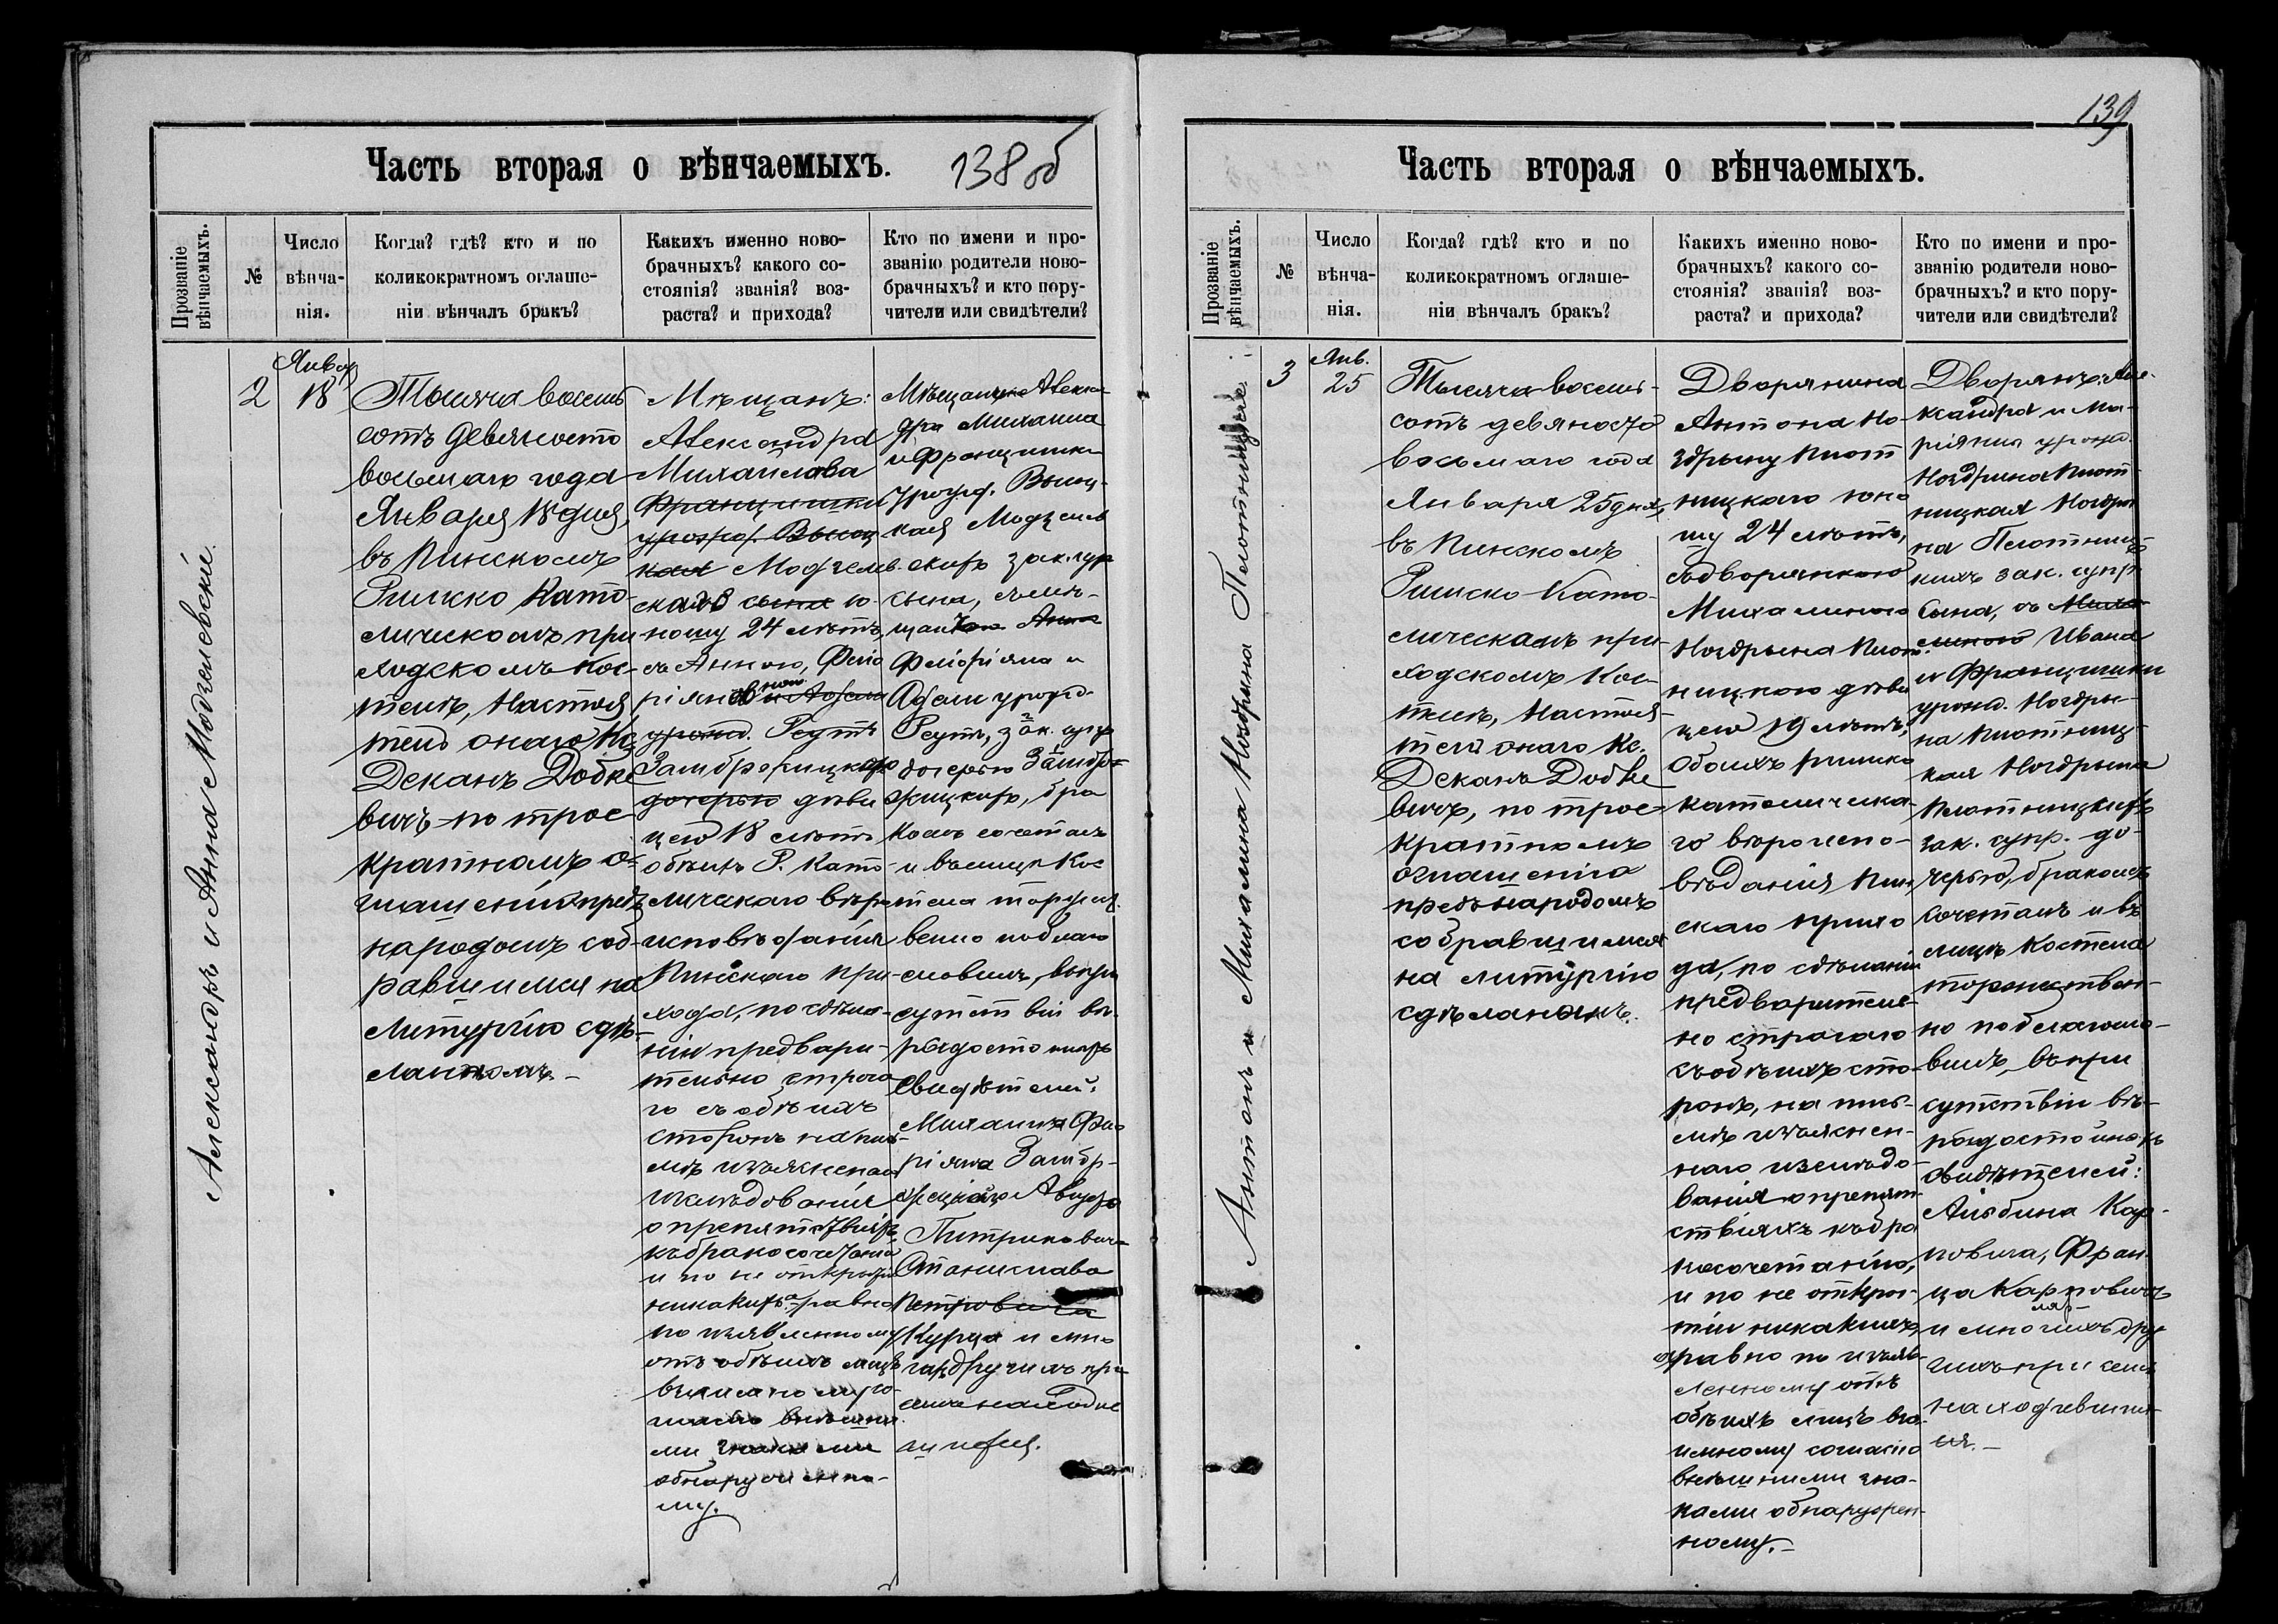 Часть вторая о вѣнчаемыхъ.
138 об
Прозваніе
вѣнчаемыхъ.
№
Число
вѣнча-
нія.
Когда? гдѣ? кто и по
коликократномъ оглаше-
ніи вѣнчалъ бракъ?
Какихъ именно ново-
брачныхъ? какого со-
стоянія? званія? воз-
раста? и прихода?
Кто по имени и про-
званію родители ново-
брачныхъ? и кто пору-
чители или свидѣтели?
Александръ и Анна Модзелевскіе.
2
Январ
18
Тысяча восемь
сотъ девяносто
восьмаго года
Января 18 дня,
въ Пинскомъ
Римско Като-
лическомъ при
ходскомъ Кос-
телѣ, Настоя
тель онаго Кс.
Деканъ Добке
вичъ по трое
кратномъ о-
глашеніи предъ
народомъ соб-
равшимся на
Литургію сдѣ-
ланномъ.-
Мѣщанъ:
Александра
Михаилова
Францишки
урожд. Высоц
кая Модзелев-
скаго сына ю-
ношу 24 лѣтъ,
съ Анною, Фло
ріяновною и Адели
урожд. Реутъ
Замбржицкою
дочерью дѣви
цею 18 лѣтъ
обѣихъ Р. Като-
лическаго вѣро
исповѣданія
Пинскаго при-
хода, по сдѣла-
ніи предвари-
тельно строга
го съ обѣихъ
сторонъ на пись-
мѣ изъясненнаго
изслѣдованія
о препятствіяхъ
къ бракосочетанію
и по не открытіи
никакихъ, а равно
по изявленному
отъ обѣихъ лицъ
взаимному со-
гласію внѣшни
ми знаками
обнаруженно-
му.
Мѣщанъ Алекса-
дра Михаила
и Францишки
урожд. Высоц-
кая Модзелев
скихъ зак. супр
сына, съ мѣ-
щанкою Анна
Флоріяна и
Адели урожд.
Реутъ, зак. супр
дочерью Замбр-
жицкихъ, бра
комъ сочеталъ
и въ лицѣ Кос
тела торжест-
венно поблаго
словилъ, въ при
сутствіи вѣ-
рыдостойныхъ
свидѣтелей:
Михаила Фло
ріяна Замбр-
жицкаго
Станислава
Петровича
Курца и мно
гихъ другихъ при
семъ находив
шихся.
139
Часть вторая о вѣнчаемыхъ.
Прозваніе
вѣнчаемыхъ.
№
Число
вѣнча-
нія.
Когда? гдѣ? кто и по
коликократномъ оглаше-
ніи вѣнчалъ бракъ?
Какихъ именно ново-
брачныхъ? какого со-
стоянія? званія? воз-
раста? и прихода?
Кто по имени и про-
званію родители ново-
брачныхъ? и кто пору-
чители или свидѣтели?
Антонъ и Михалина Ноздрина Плотницкіе.
3
Янв.
25
Тысяча восемь-
сотъ девяносто
восьмаго года
Января 25 дня,
въ Пинскомъ
Римско Като-
лическомъ при-
ходскомъ Кос-
телѣ, Настоя-
тель онаго Кс.
Деканъ Добке
вичъ, по трое-
кратномъ
оглашеніи
предъ народомъ
собравшимся
на литургію
сдѣланномъ.
Дворянина
Антона Но-
здрыну Плот
ницкаго юно
шу 24 лѣтъ,
съ дворянкою
Михалиною
Ноздрына Плот-
ницкою дѣви
цею 19 лѣтъ,
обоихъ римско
католическа-
го вѣроиспо-
вѣданія Пин
скаго прихо
да, по сдѣланіи
предварител-
но строгаго
съ обѣихъ сто-
ронъ, на пись-
мѣ изъяснен-
наго изслѣдо-
ванія о препят-
ствіяхъ къ бра
косочетанію,
и по не откры-
тіи никакихъ,
а равно по изъяв-
ленному отъ
обѣихъ лицъ вза-
имному согласію
внѣшними зна-
ками обнаружен-
ному.-
Дворянъ Але-
ксандра и Ма-
ріянны урожд.
Ноздрина Плот-
ницкая Ноздры
на Плотниц-
кихъ зак. супр
сына, съ Миха-
линою Ивана
и Францишки
урожд. Ноздры-
на Плотниц-
кая Ноздрына
Плотницкихъ
зак. супр. до-
черью, бракомъ
сочеталъ и въ
лицѣ Костела
торжествен-
но поблагосло-
вилъ, въ при
сутствіи вѣ-
рыдостойныхъ
свидѣтелей:
Альбина Кар-
повича, Фран-
ца Карповича
и многихъ дру
гихъ при семъ
находившихъ-
ся.-